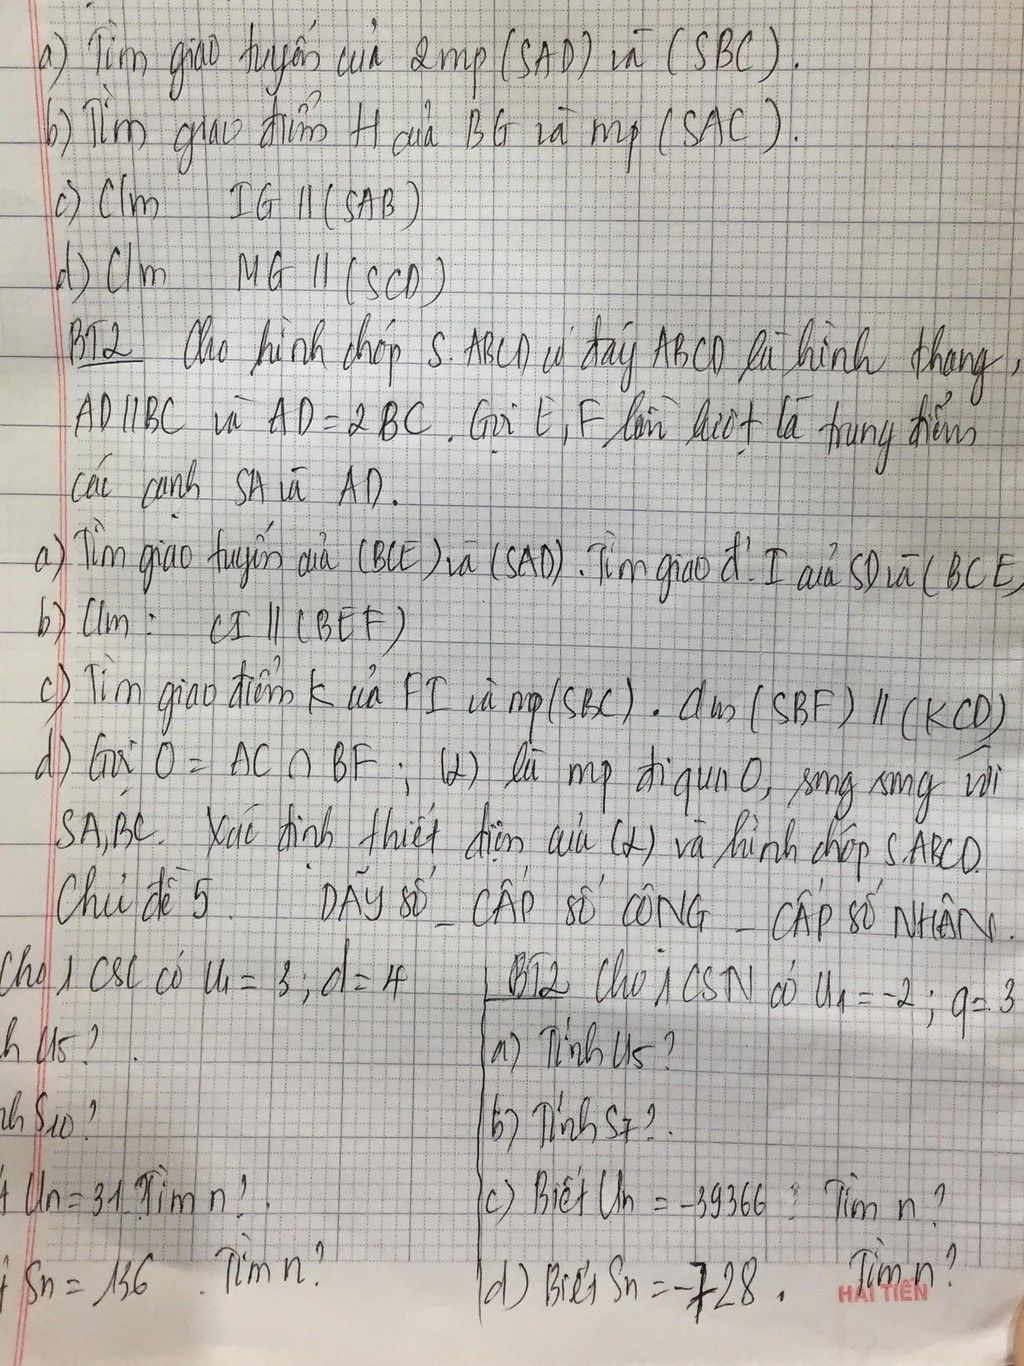 a) Tìm giao tuyến của 2mp (SAD) và (SBC).
b) Tìm giao điểm H của BG và mp (SAC).
c) C/m IG // (SAB)
d) C/m MG // (SCD)
BT2 Cho hình chóp S.ABCD có đáy ABCD là hình thang,
AD//BC và AD = 2BC. Gọi E, F lần lượt là trung điểm
các cạnh SA và AD.
a) Tìm giao tuyến của (BCE) và (SAD). Tìm giao đ' I của SD và (BCE)
b) C/m: CI // (BEF)
c) Tìm giao điểm K của FI và mp (SBC). cm (SBF) // (KCD)
d) Gọi O = AC ∩ BF ; (α) là mp đi qua O, song song với
SA, BC. Xác định thiết diện của (α) và hình chóp S.ABCD.
Chủ đề 5. DÃY SỐ _ CẤP SỐ CỘNG _ CẤP SỐ NHÂN.
Cho 1 CSC có U1 = 3 ; d = 4
h U5?
nh S10?
Un = 31. Tìm n?
Sn = 136. Tìm n?
BT2 Cho 1 CSN có U1 = -2 ; q = 3
a) Tính U5?
b) Tính S7?.
c) Biết Un = -39366 ? Tìm n?
d) Biết Sn = -728. Tìm n?
HẢI TIẾN